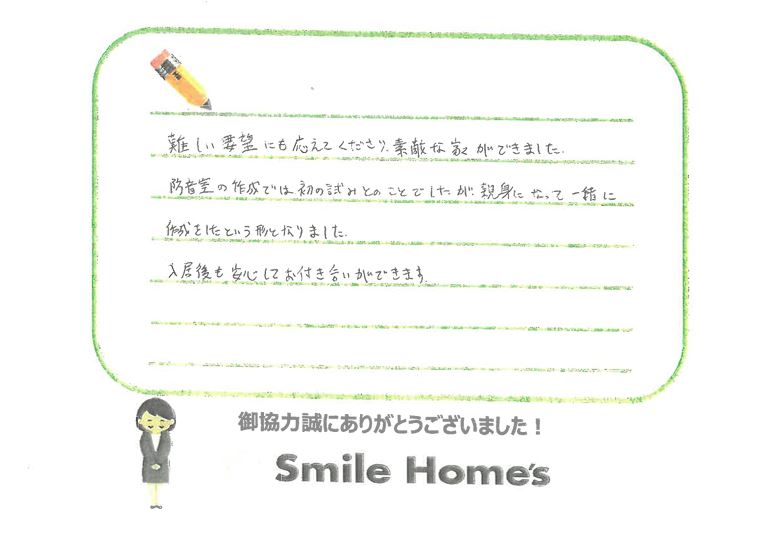 難しい要望にも応えてくださり、素敵な家ができました。
防音室の作成では初の試みとのことでしたが、親身になって一緒に
作成をしたという形となりました。
入居後も安心してお付き合いができます。
御協力誠にありがとうございました！
Smile Home's